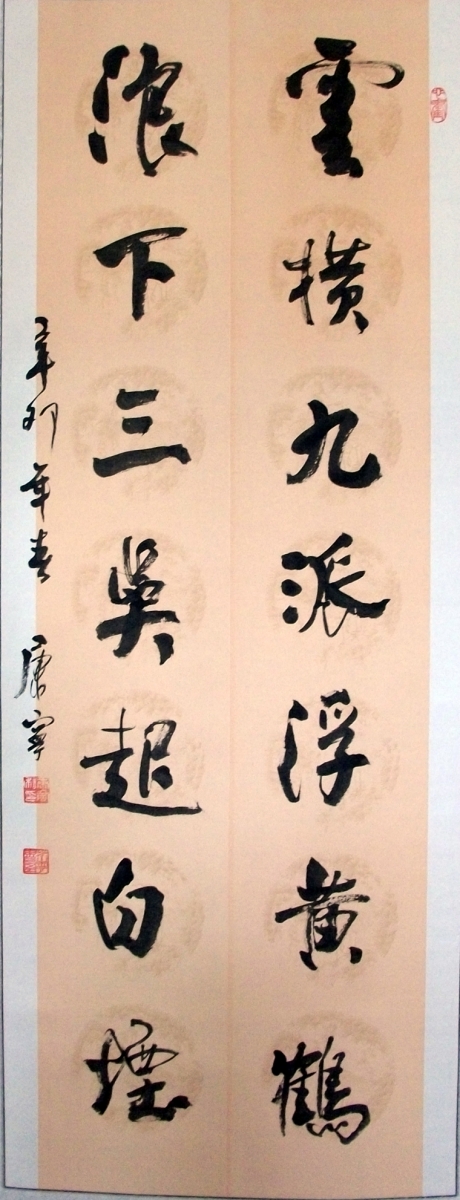 雲橫九派浮黃鶴
浪下三吳起白煙
辛卯年春 康寧